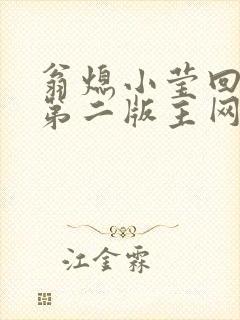 翁熄小莹回
第二版主网
江金霖